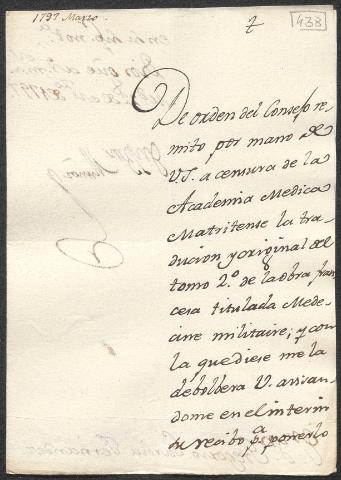 1797 Marzo
433
De orden del Consejo re-
mito por mano de
V.S. a censura de la
Academia Medica
Matritense la tra-
ducion y original del
tomo 2.º de la obra fran
cesa titulada Mede-
cine militaire; y con
la que diese me la
debolbera V. avisan-
dome en el interin
su recibo p.ª ponerlo